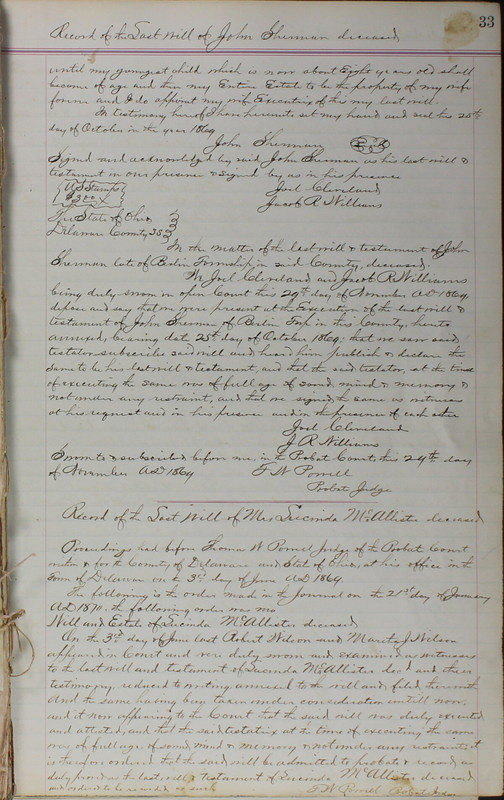 33
Record of the Last Will of John Sherman deceased
until my youngest child which is now about Eight years old shall
become of age and then my Entire Estate to be the property of my wife
forever and I do appoint my wife Executrix of this my last will.
In testimony hereof I have hereunto set my hand and seal this 25th
day of October in the year 1869
John Sherman
Signed and acknowledged by said John Sherman as his last will &
testament in our presence & signed by us in his presence
Joel Cleveland
Jacob R Williams
US Stamps
The State of Ohio
Delaware County SS
In the matter of the last will & testament of John
Sherman late of Berlin Township in said County, deceased.
We Joel Cleveland and Jacob R Williams
being duly sworn in open Court this 29th day of November AD 1869,
depose and say that we were present at the Execution of the last will &
testament of John Sherman of Berlin Twp in this County, hereto
annexed, bearing date 25th day of October 1869; that we saw said
testator subscribe said will and heard him publish & declare the
same to be his last will & testament, and that the said testator, at the time
of executing the same was of full age of sound mind & memory &
not under any restraint, and that we signed the same as witnesses
at his request and in his presence and in the presence of each other
Joel Cleveland
J R Williams
Sworn to & subscribed before me, in the Probate Court, this 29th day
of November AD 1869
T W Powell
Probate Judge
Record of the Last Will of Mrs Lucinda McAllister deceased
Proceedings had before Thomas W Powell Judge of the Probate Court
within & for the County of Delaware and State of Ohio, at his office in the
Town of Delaware on the 3rd day of June AD 1869.
The following is the order made in the Journal on the 21st day of January
AD 1870. the following order was
Will and Estate of Lucinda McAllister deceased
On the 3rd day of June last Robert Wilson and J Wilson
appeared in Court and were duly sworn and examined as witnesses
to the last will and testament of Lucinda McAllister decd and their
testimony, reduced to writing annexed to the will and filed therewith
And the same having been taken under consideration untill now,
and it now appearing to the Court that the said will was duly executed
and attested, and that the said testatrix at the time of executing the same
was of full age, of sound mind & memory & not under any restraint, it
is therefore ordered that the said will be admitted to probate & record as
duly proved the last will & testament of Lucinda McAllister deceased
and ordered to be recorded as such
T W Powell Probate Judge